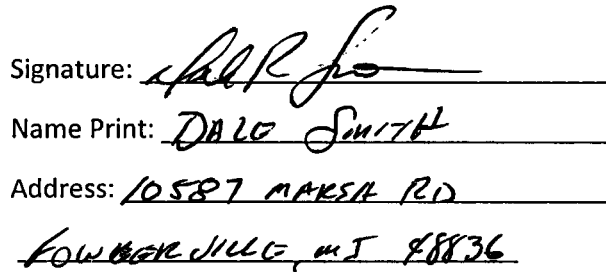 Signature: Dale R S
Name Print: DALE SMITH
Address: 10587 MARSH RD
FOWLERVILLE, MI 48836